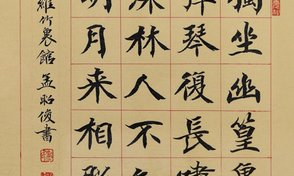 獨坐幽篁
琴復長嘯
林人不
明月来相
維竹裏館 孟昭俊書